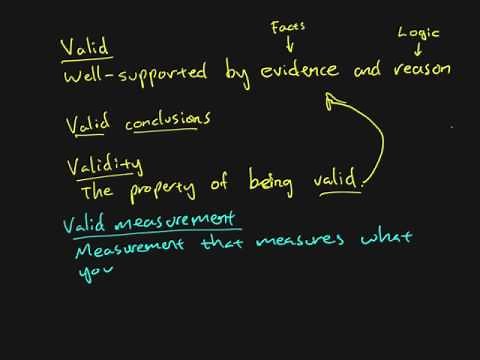 Facts
Logic
Valid
Well-supported by evidence and reason
Valid conclusions
Validity
The property of being valid.
Valid measurement
Measurement that measures what
you